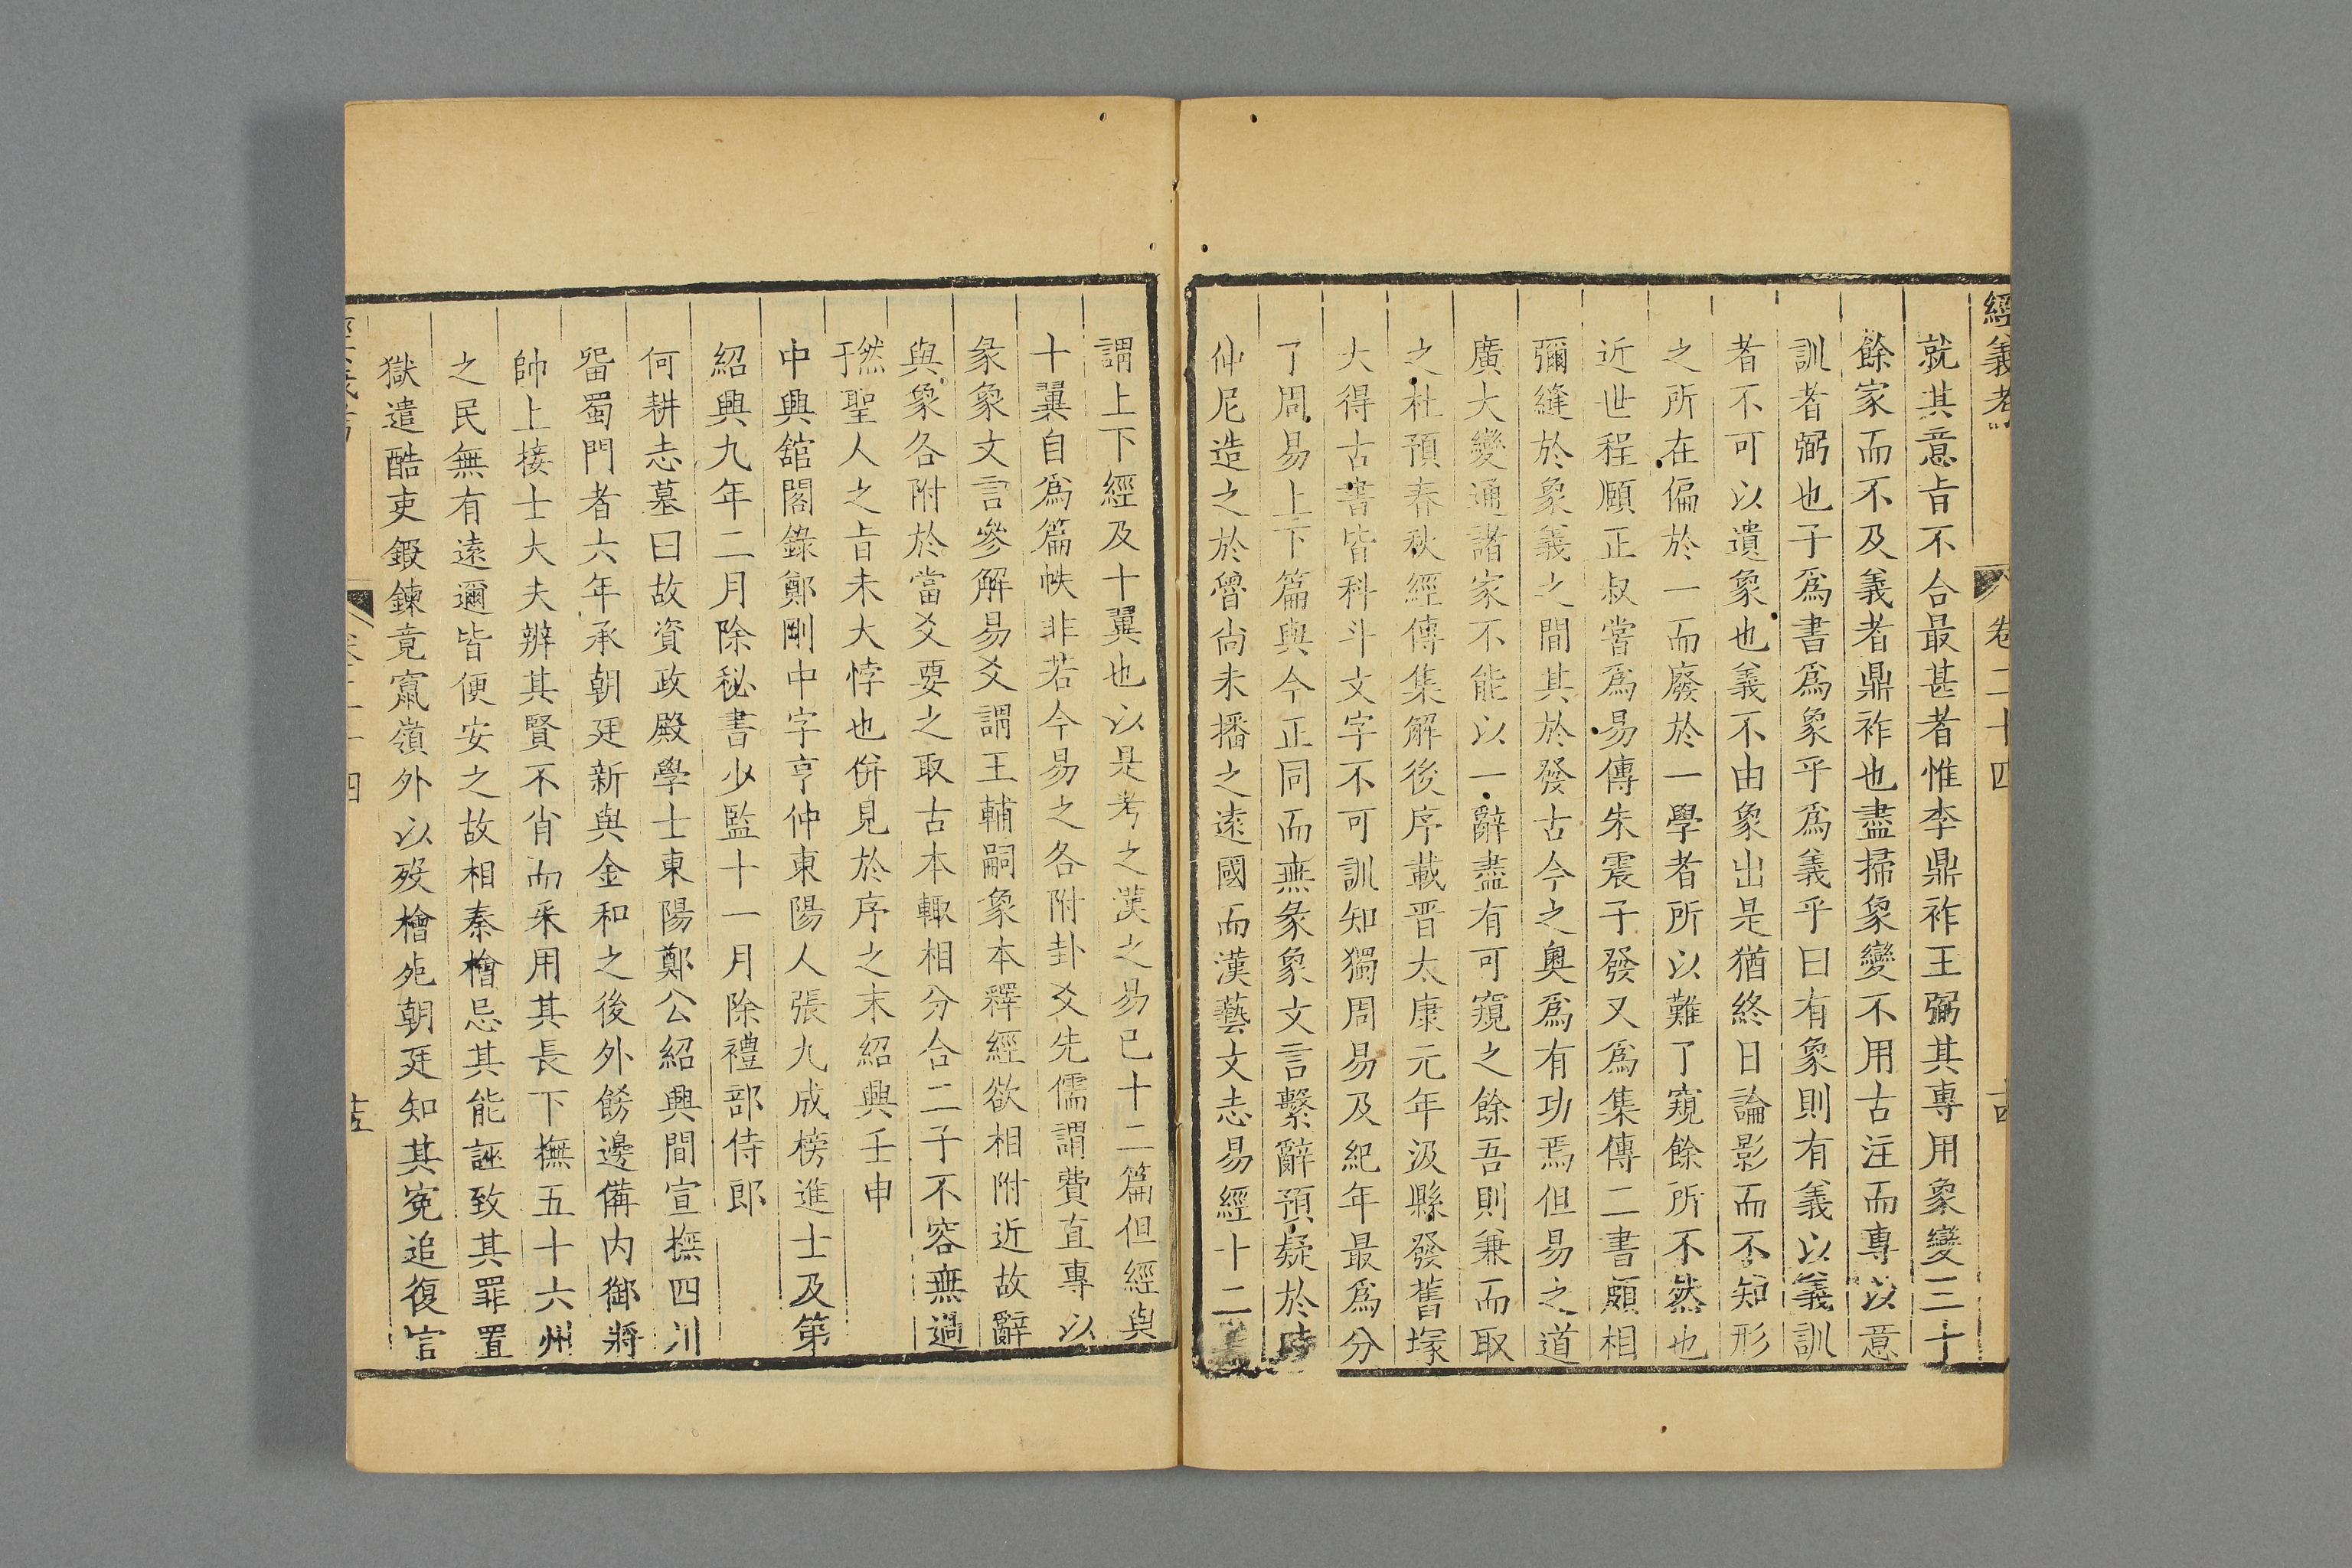 經義考 卷二十四 古
就其意旨不合最甚者惟李鼎祚王弼其專用象變三十
餘家而不及義者鼎祚也盡掃象變不用古注而專以意
訓者弼也子爲書爲象乎爲義乎曰有象則有義以義訓
者不可以遺象也義不由象出是猶終日論影而不知形
之所在偏於一而廢於一學者所以難了窺餘所不然也
近世程頤正叔嘗爲易傳朱震子發又爲集傳二書頗相
彌縫於象義之間其於發古今之奧爲有功焉但易之道
廣大變通諸家不能以一辭盡有可窺之餘吾則兼而取
之杜預春秋經傳集解後序載晋太康元年汲縣發舊塚
大得古書皆科斗文字不可訓知獨周易及紀年最爲分
了周易上下篇與今正同而無彖象文言繫辭預疑於時
仲尼造之於魯尚未播之遠國而漢藝文志易經十二
謂上下經及十翼也以是考之漢之易已十二篇但經與
十翼自爲篇帙非若今易之各附卦爻先儒謂費直專以
彖象文言參解易爻謂王輔嗣象本釋經欲相附近故辭
與象各附於當爻要之取古本輙相分合二子不容無過
于然聖人之旨未大悖也併見於序之末紹興壬申
中興舘閣錄鄭剛中字亨仲東陽人張九成榜進士及第
紹興九年二月除秘書少監十一月除禮部侍郎
何耕志墓曰故資政殿學士東陽鄭公紹興間宣撫四川
畱蜀門者六年承朝廷新與金和之後外餝邊備内御將
帥上接士大夫辨其賢不肖而采用其長下撫五十六州
之民無有遠邇皆便安之故相秦檜忌其能誣致其罪置
獄遣酷吏鍛鍊竟竄嶺外以歿檜死朝廷知其寃追復官